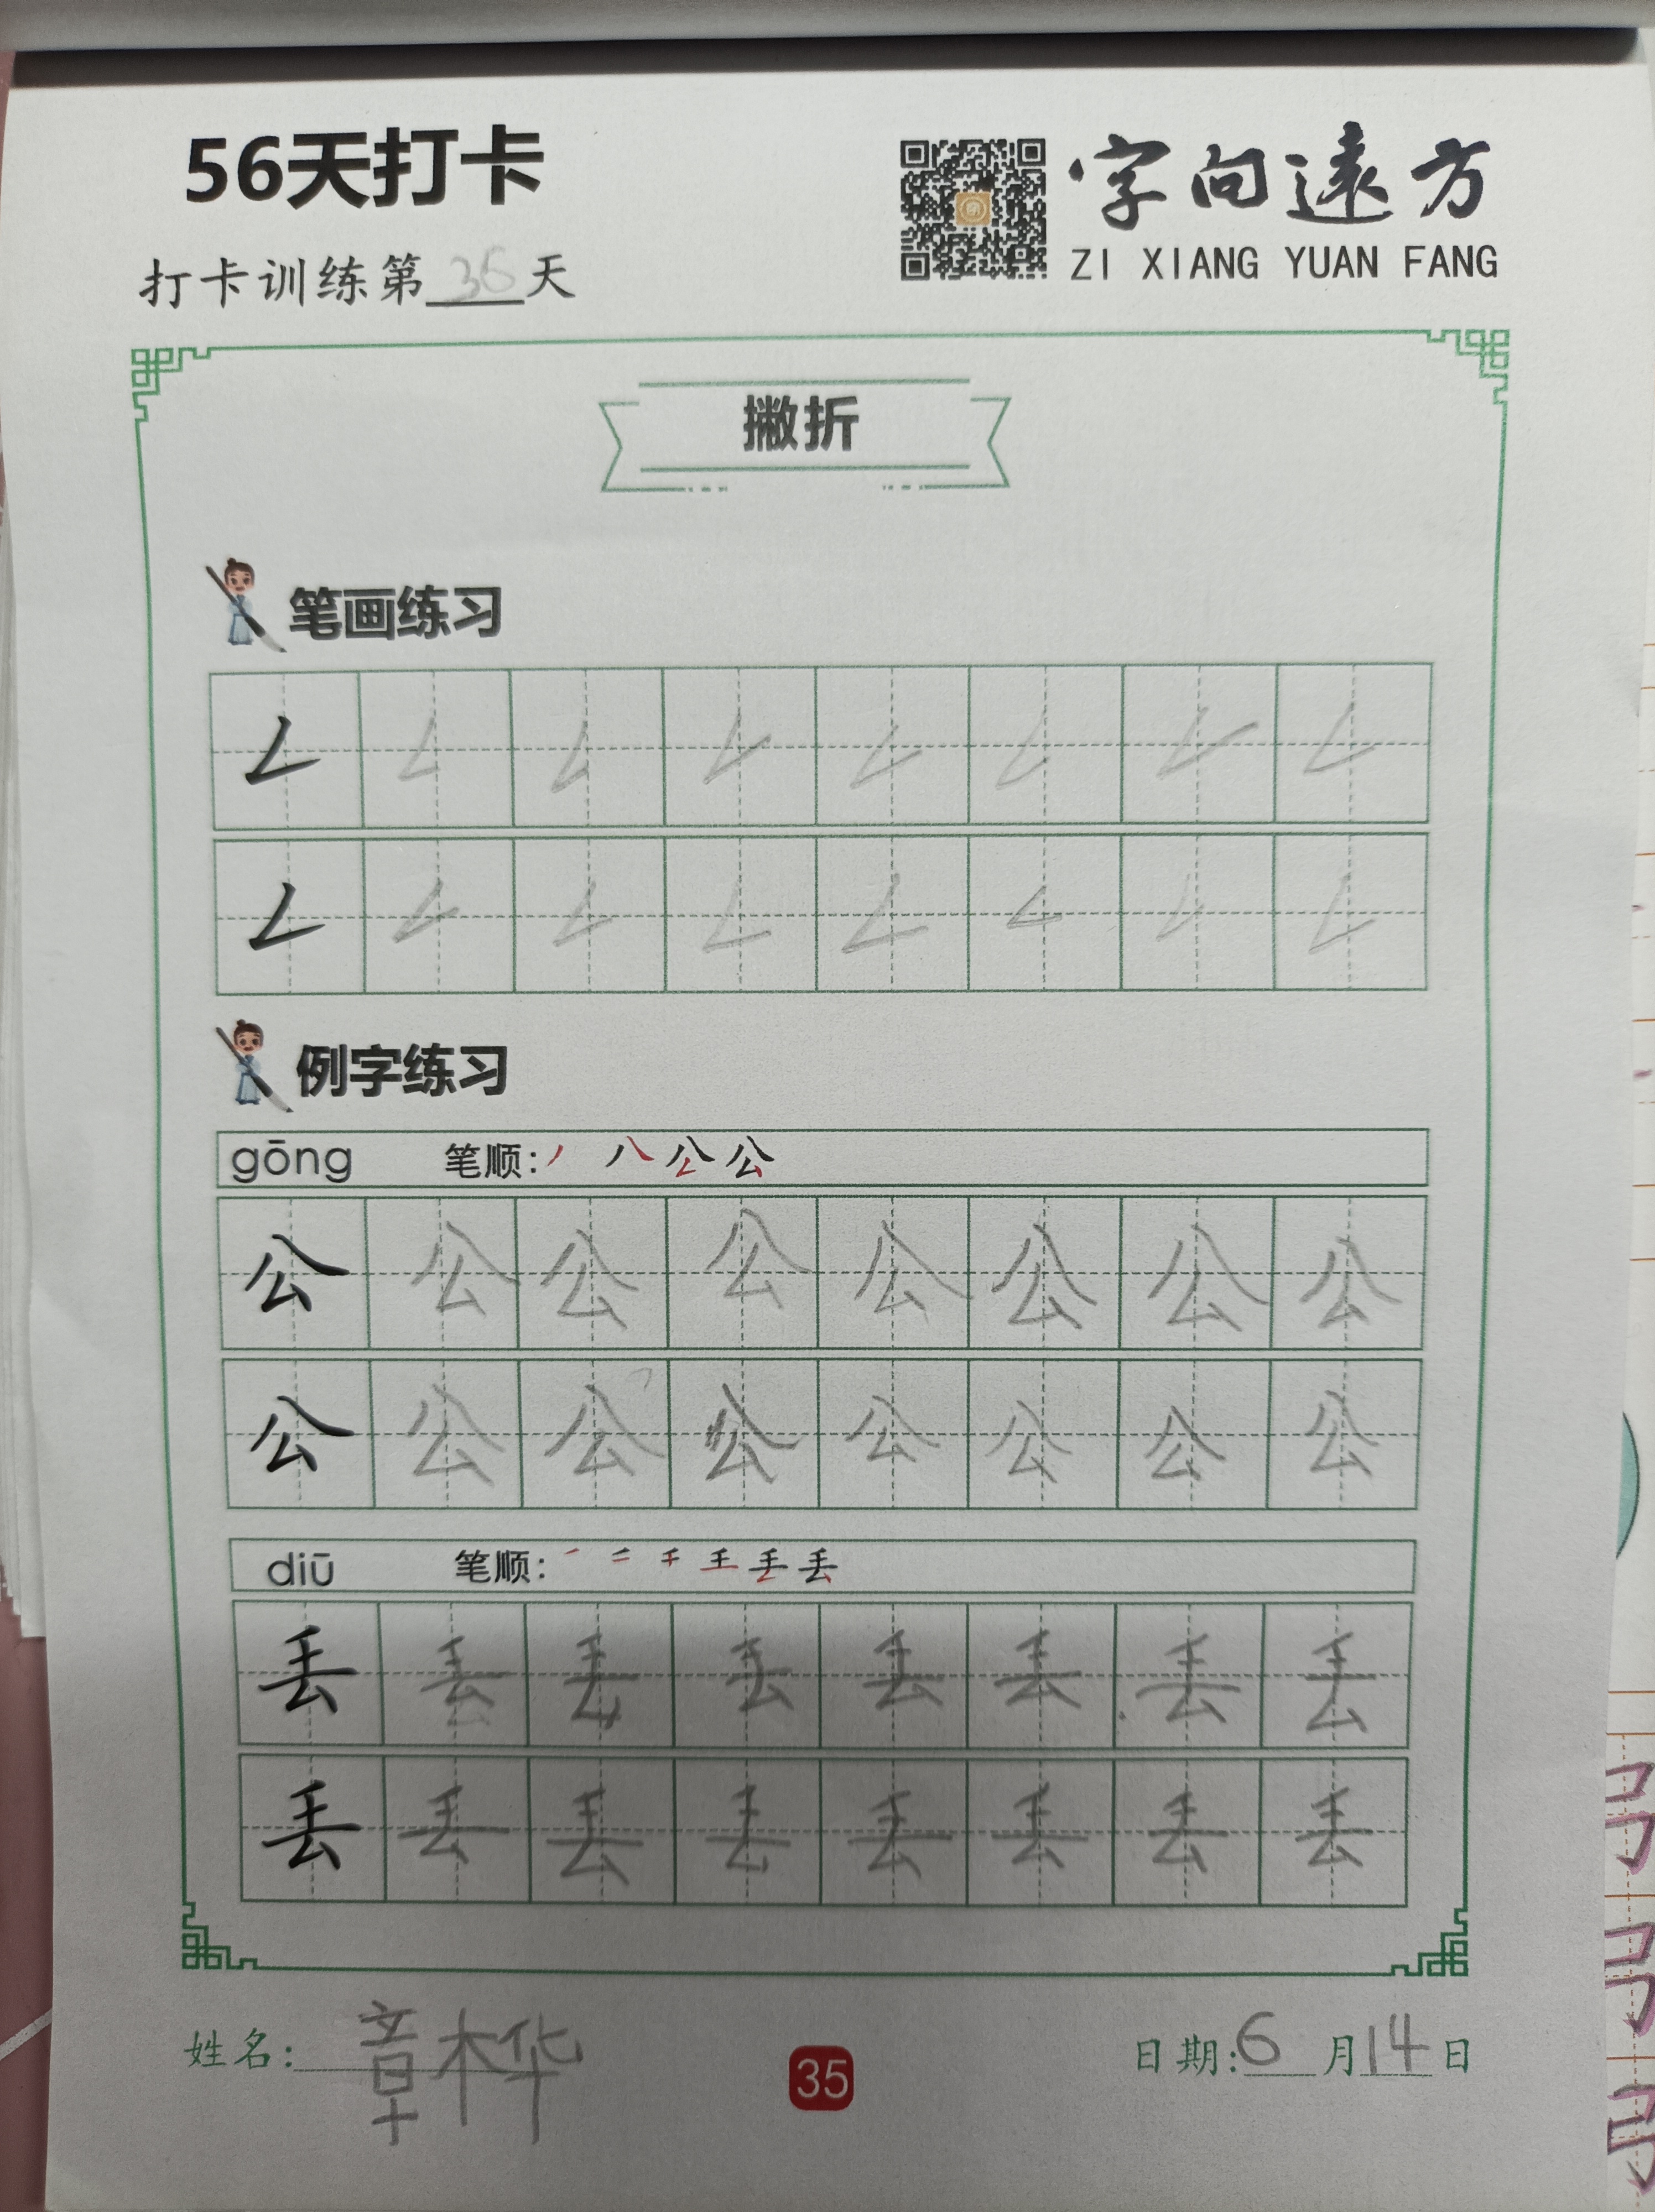 56天打卡
字向遠方
ZI XIANG YUAN FANG
打卡训练第36天
撇折
笔画练习
𠃋 𠃋 𠃋 𠃋 𠃋 𠃋 𠃋 𠃋
𠃋 𠃋 𠃋 𠃋 𠃋 𠃋 𠃋 𠃋
例字练习
gōng 笔顺: 丿 八 公 公
公 公 公 公 公 公 公 公
公 公 公 公 公 公 公 公
diū 笔顺:
丢 丢 丢 丢 丢 丢 丢 丢
丢 丢 丢 丢 丢 丢 丢 丢
姓名: 章桦
35
日期: 6月14日